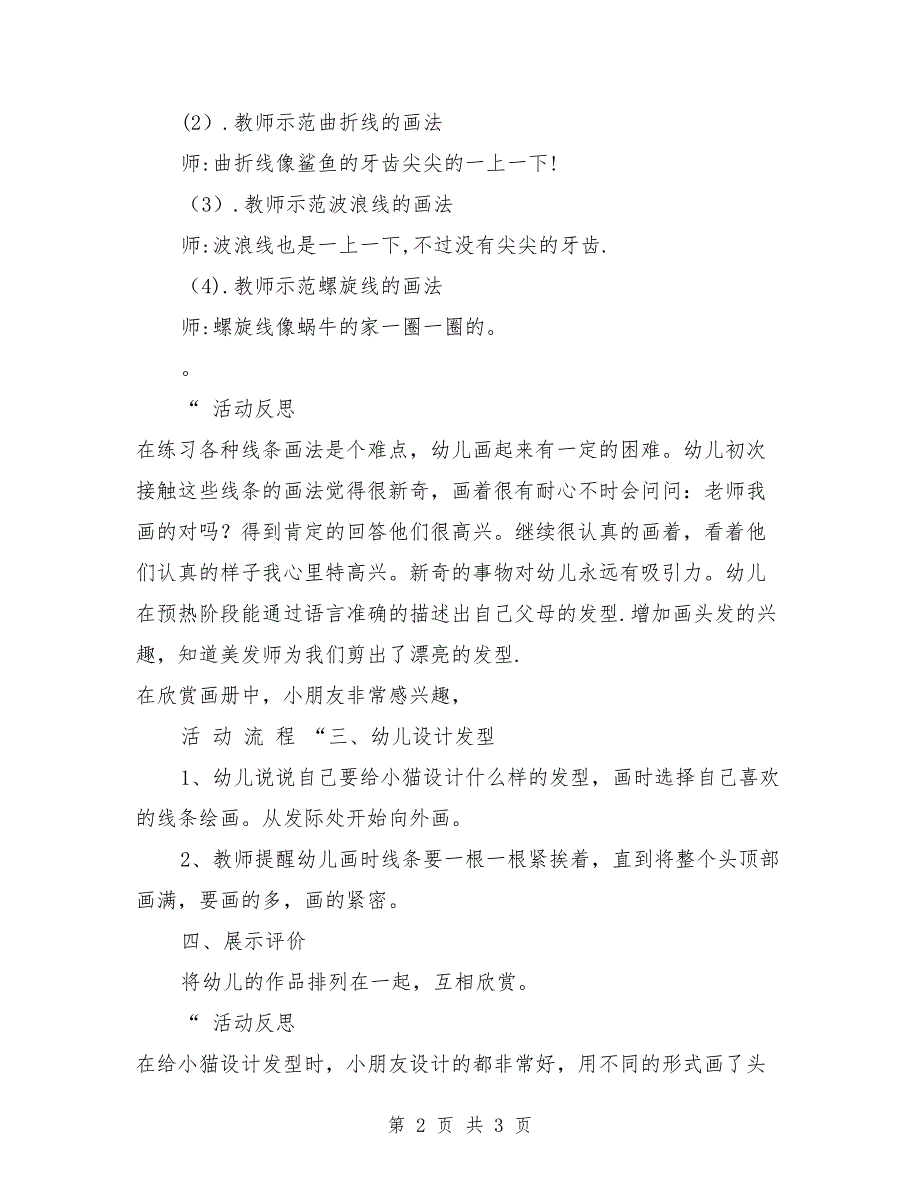 (2）.教师示范曲折线的画法
师:曲折线像鲨鱼的牙齿尖尖的一上一下!
（3）.教师示范波浪线的画法
师:波浪线也是一上一下,不过没有尖尖的牙齿.
（4).教师示范螺旋线的画法
师:螺旋线像蜗牛的家一圈一圈的。
。
“ 活动反思
在练习各种线条画法是个难点，幼儿画起来有一定的困难。幼儿初次
接触这些线条的画法觉得很新奇，画着很有耐心不时会问问：老师我
画的对吗？得到肯定的回答他们很高兴。继续很认真的画着，看着他
们认真的样子我心里特高兴。新奇的事物对幼儿永远有吸引力。幼儿
在预热阶段能通过语言准确的描述出自己父母的发型.增加画头发的兴
趣，知道美发师为我们剪出了漂亮的发型.
在欣赏画册中，小朋友非常感兴趣，
活 动 流 程 “三、幼儿设计发型
1、幼儿说说自己要给小猫设计什么样的发型，画时选择自己喜欢
的线条绘画。从发际处开始向外画。
2、教师提醒幼儿画时线条要一根一根紧挨着，直到将整个头顶部
画满，要画的多，画的紧密。
四、展示评价
将幼儿的作品排列在一起，互相欣赏。
“ 活动反思
在给小猫设计发型时，小朋友设计的都非常好，用不同的形式画了头
第 2 页 共 3 页